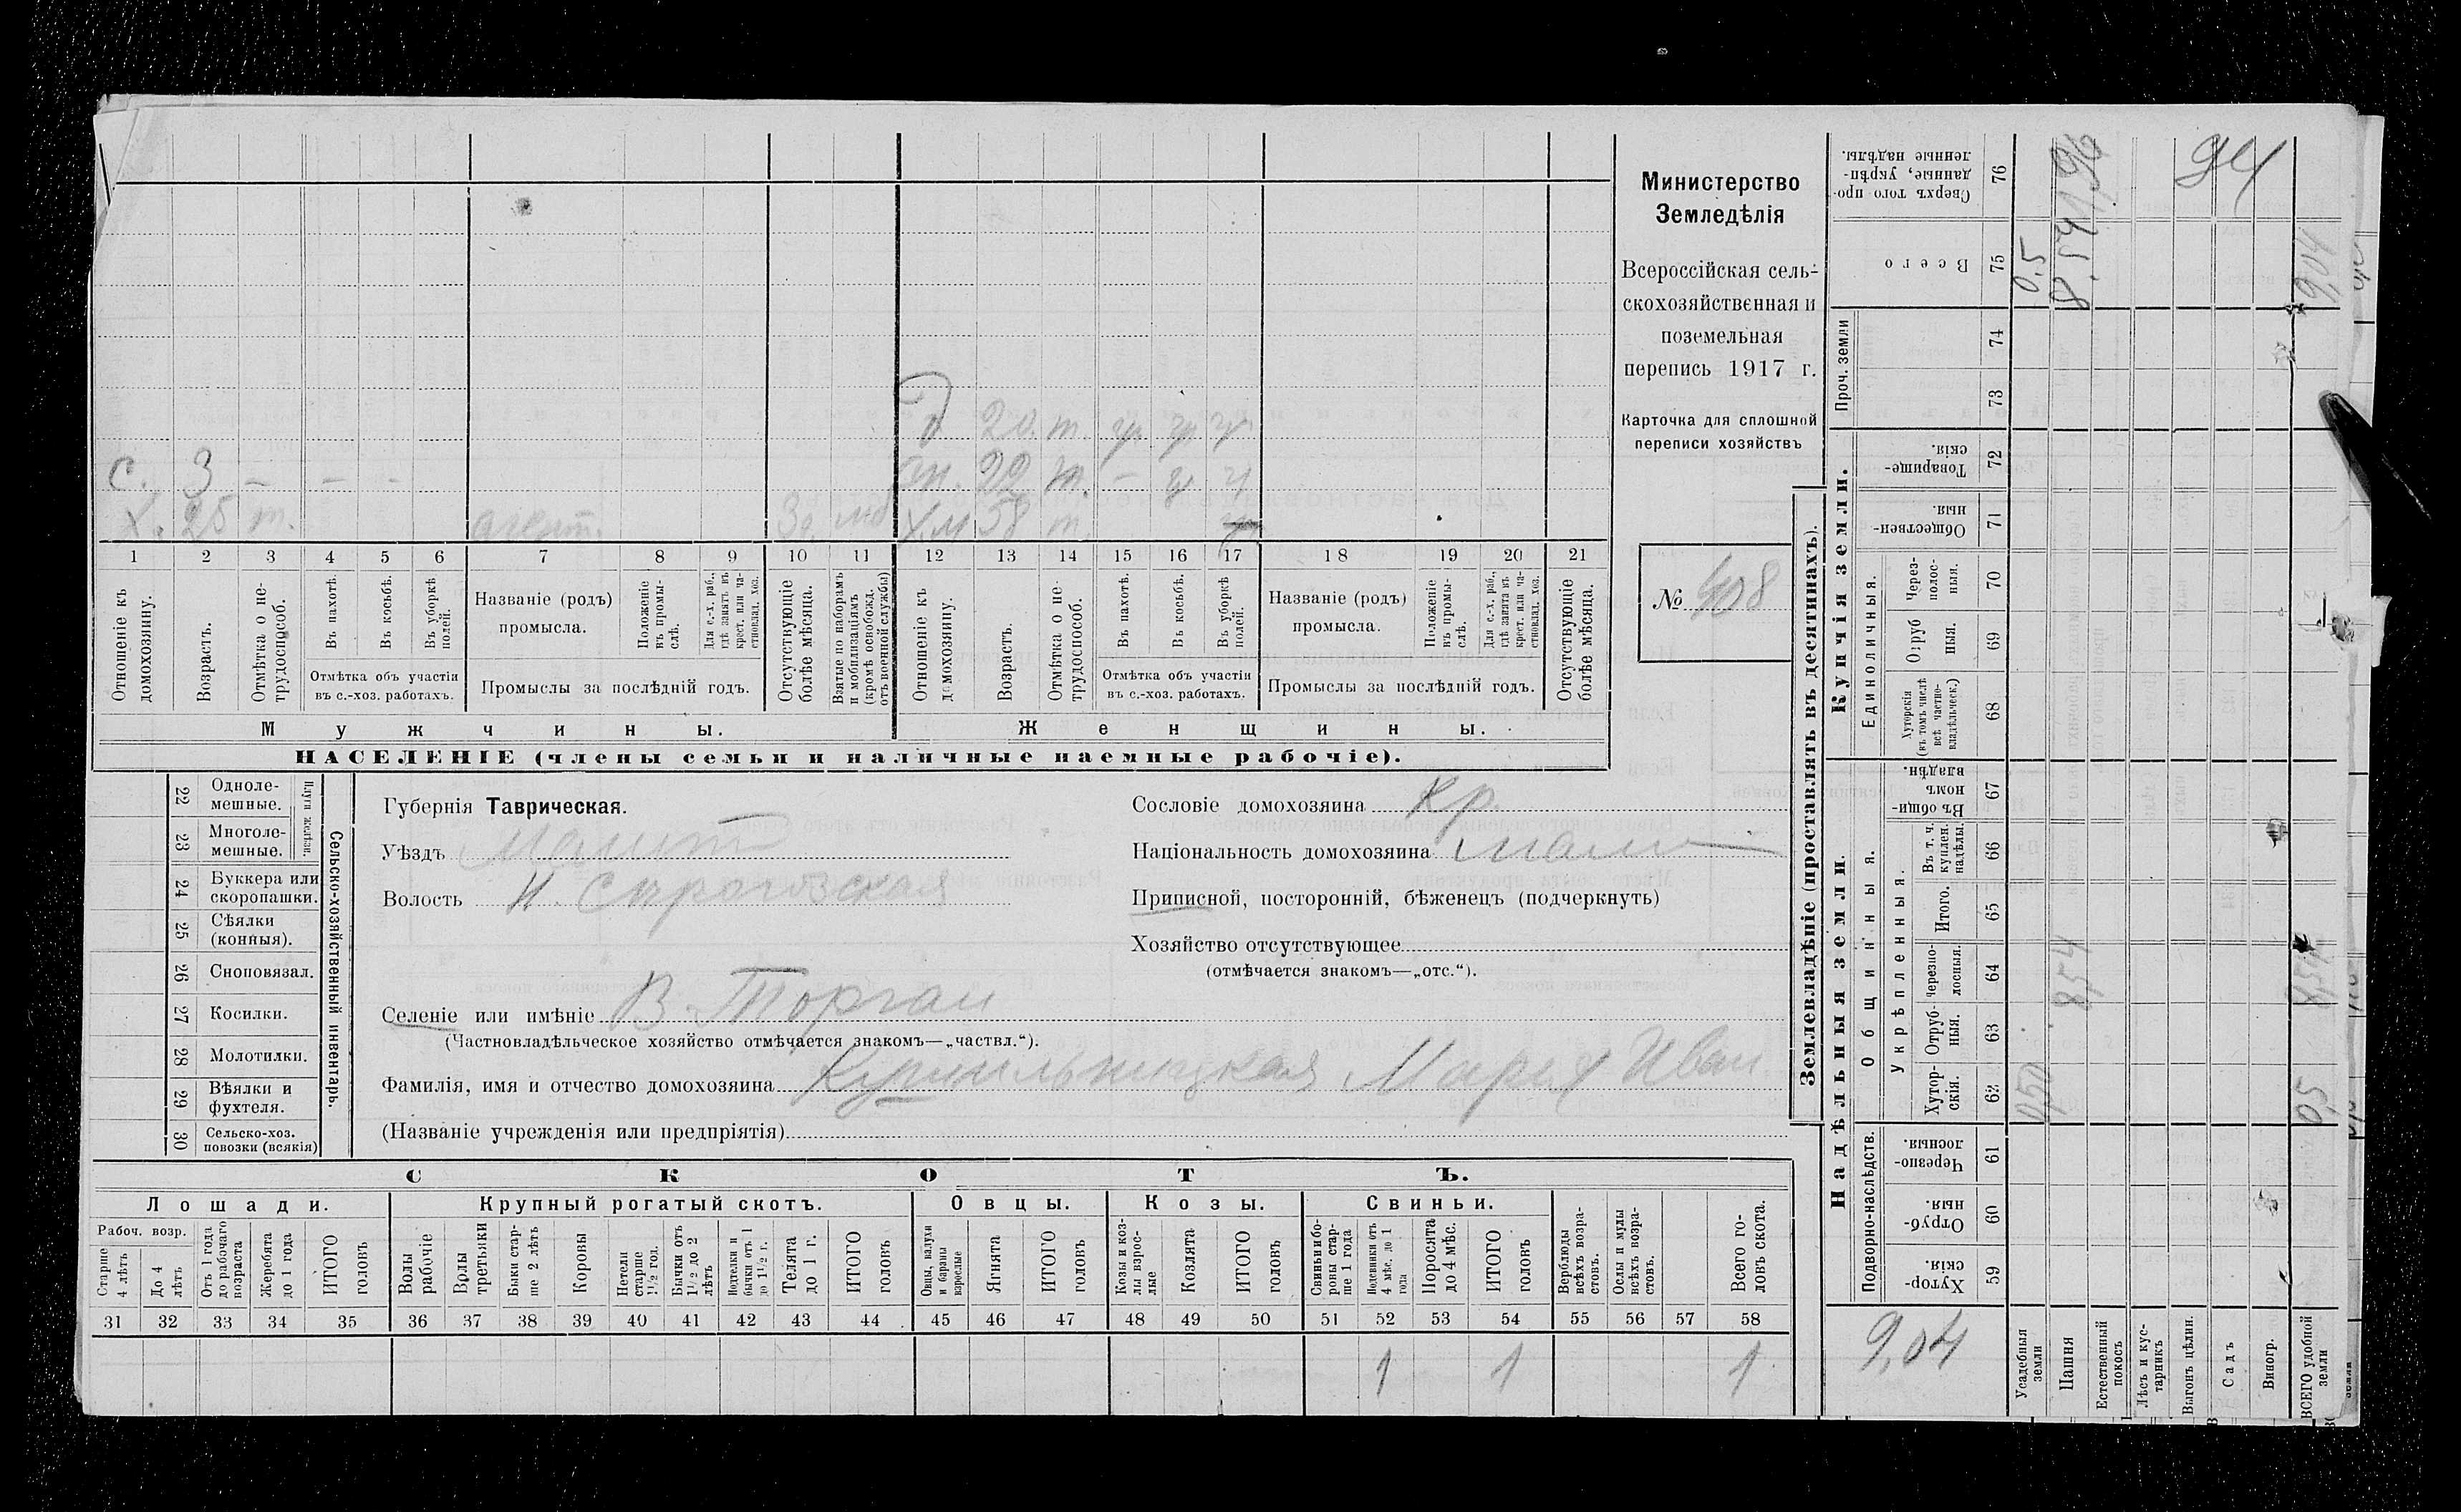 Министерство
Земледѣлія
Всероссійская сель-
скохозяйственная и
поземельная
перепись 1917 г.
Карточка для сплошной
переписи хозяйствъ
№ 408
д 20. т.
с. 3 — — —
т.
х. 25 т. 58 т.
1 2 3 4 5 6 7 8 9 10 11 12 13 14 15 16 17 18 19 20 21
Отношеніе къ домохозяину.
Возрастъ.
Отмѣтка о не-трудоспособ.
Въ пахотѣ.
Въ косьбѣ.
Въ уборкѣ полей.
Отмѣтка объ участіи
въ с.-хоз. работахъ.
Названіе (родъ)
промысла.
Положеніе въ промы-слѣ.
Для с.-х. раб., гдѣ занятъ въ крест. или ча-стновлад. хоз.
Промыслы за послѣдній годъ.
Отсутствующіе болѣе мѣсяца.
Взятые по наборамъ и мобилизаціямъ (кромѣ освобожд. отъ военной службы)
Отношеніе къ домохозяину.
Возрастъ.
Отмѣтка о не-трудоспособ.
Въ пахотѣ.
Въ косьбѣ.
Въ уборкѣ полей.
Отмѣтка объ участіи
въ с.-хоз. работахъ.
Названіе (родъ)
промысла.
Положеніе въ промы-слѣ.
Для с.-х. раб., гдѣ занята въ крест. или ча-стновлад. хоз.
Промыслы за послѣдній годъ.
Отсутствующіе болѣе мѣсяца.
Мужчины.
Женщины.
НАСЕЛЕНІЕ (члены семьи и наличные наемные рабочіе).
22 Одноле-мешные.
23 Многоле-мешные.
Плуги желѣзн.
24 Буккера или скоропашки.
25 Сѣялки (конныя).
26 Сноповязал.
27 Косилки.
28 Молотилки.
29 Вѣялки и фухтеля.
30 Сельско-хоз. повозки (всякія)
Сельско-хозяйственный инвентарь.
Губернія Таврическая.
Уѣздъ Мелит
Волость Н. Сѣрогозская
Сословіе домохозяина Кр.
Національность домохозяина мало
Приписной, посторонній, бѣженецъ (подчеркнуть)
Хозяйство отсутствующее
(отмѣчается знакомъ—„отс.“).
Селеніе или имѣніе В. Торгаи
(Частновладѣльческое хозяйство отмѣчается знакомъ—„частвл.“).
Фамилія, имя и отчество домохозяина Марія Иван.
(Названіе учрежденія или предпріятія)
СКОТЪ.
Лошади.
Рабоч. возр.
Старше 4 лѣтъ
До 4 лѣтъ
Отъ 1 года до рабочаго возраста
Жеребята до 1 года
ИТОГО головъ
Крупный рогатый скотъ.
Волы рабочіе
Волы третьяки
Быки стар-ше 2 лѣтъ
Коровы
Нетели старше 1½ гол.
Бычки отъ 1½ до 2 лѣтъ
Подтелки и бычки отъ 1 до 1½ г.
Телята до 1 г.
ИТОГО головъ
Овцы.
Овцы, валухи и бараны взрослые
Ягнята
ИТОГО головъ
Козы.
Козы и коз-лы взрос-лые
Козлята
ИТОГО головъ
Свиньи.
Свиньи и бо-ровы стар-ше 1 года
Подсвинки отъ 4 мѣс. до 1 года
Поросята до 4 мѣс.
ИТОГО головъ
Верблюды всѣхъ возра-стовъ.
Ослы и мулы всѣхъ возра-стовъ.
Всего го-ловъ скота.
31 32 33 34 35 36 37 38 39 40 41 42 43 44 45 46 47 48 49 50 51 52 53 54 55 56 57 58
1 1 1
Землевладѣніе (проставлять въ десятинахъ).
Купчія земли.
Надѣльныя земли.
Сверхъ того про-данные, укрѣп-ленные надѣлы. 76
Всего 75 0.5 8.54 9,04
94
Проч. земли 74 73
Товарище-скія. 72
Обществен-ныя. 71
Единоличныя.
Через-полос-ныя. 70
Отруб ныя. 69
Хуторскія (въ томъ числѣ всѣ частно-владѣльческ.) 68
Общинныя.
Въ общин-номъ владѣн. 67
Укрѣпленныя.
Въ т. ч. куплен. надѣлы. 66
Итого. 65
Черезпо-лосныя. 64 8,54 8,54
Отруб-ныя. 63
Хутор-скія. 62 0,50 0,5
Подворно-наслѣдств.
Черезпо-лосныя. 61
Отруб-ныя. 60
Хутор-скія. 59
9,04
Усадебныя земли
Пашня
Естественный покосъ
Лѣсъ и кус-тарникъ
Выгонъ цѣлин.
Садъ
Виногр.
ВСЕГО удобной земли